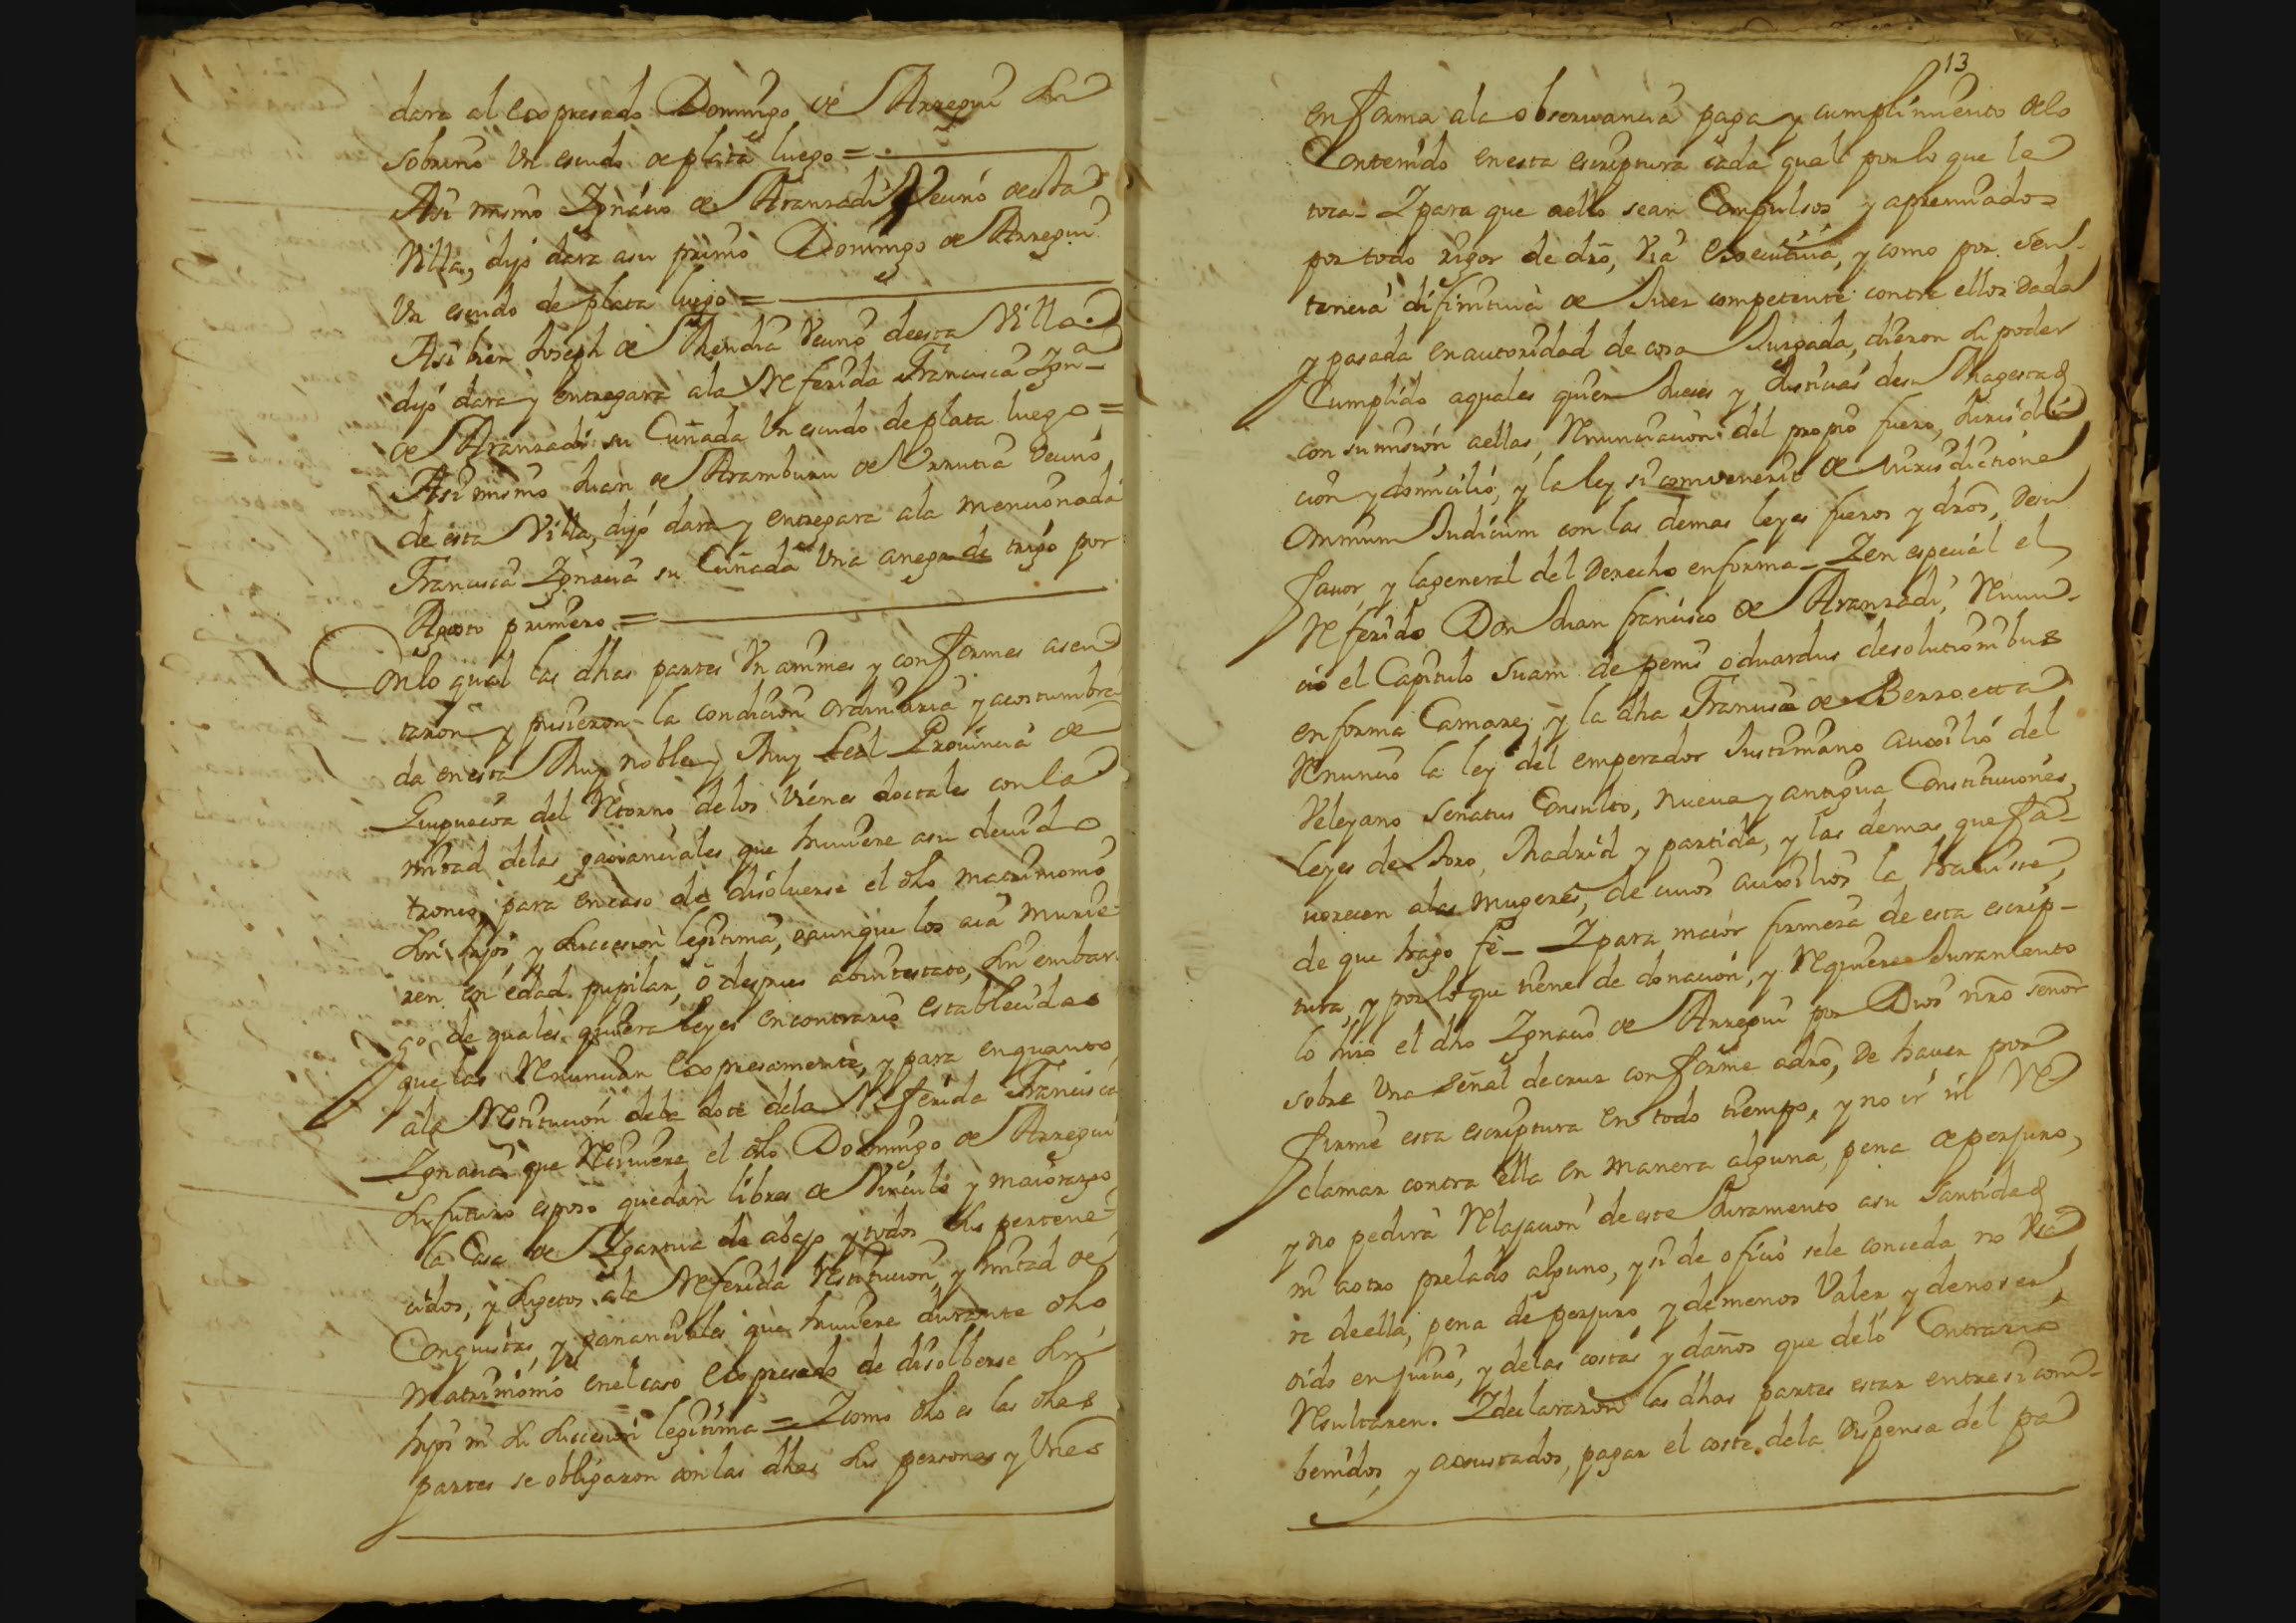 dara al expresado Domingo de Arregui su
sobrino Un escudo de plata luego =
Asi mismo Ignacio de Aranzadi Vecino de esta
Villa, dijo dara asu primo Domingo de Arregui
Un escudo de plata luego =
Asi bien Joseph de Mendia Vecino de esta Villa
dijo dara y entregara ala Referida Franca Ign.a
de Aranzadi su Cuñada Un escudo de plata luego =
Asi mismo Juan de Aramburu de Urrutia Vecino
de esta Villa, dijo dara y entregara ala mencionada
Francisca Ignacia su Cuñada Una anega de trigo por
Agosto primero =
Conlo qual las dhas partes Unanimes y conformes asen
taron y pusieron la condicion ordinaria y acostumbra
da en esta Muy noble y Muy Leal Provincia de
Guipuzcoa del Retorno delos Vienes doctales con la
mitad delas gananciales que huuiere asu deuido
tronco, para en caso de disoluerse el dho matrimonio
sin hijos y succession legitima, o aunque los aia murie
ren en edad pupilar, ò despues abintestato, sin embar
go de quales quiera leyes en contrario establecidas
que las Renuncian expresamente, y para en quanto
ala Restitucion dela dote dela Referida Francisca
Ignacia que Reciuiere el dho Domingo de Arregui
su futuro esposo quedan libres de Vinculo y maiorazgo
la Casa de Igartua de abajo y todos sus pertene
cidos, y sugetos ala Referida Restitucion y mitad de
Conquistas, y gananciales que huuiere durante dho
Matrimonio en el caso expresado de disolberse sin
hijos ni su succesion legitima = I como dho es las dhas
partes se obligaron con las dhas sus personas y Vienes
13
en forma ala obseruancia paga y cumplimiento delo
Contenido en esta escriptura cada qual por lo que le
toca - I para que aello sean Compulsos y apremiados
por todo rigor de dro, Via executiua, y como por sen
tencia difinitiua de Juez competente contra ellos dada
y pasada en autoridad de cosa Juzgada, dieron su poder
Cumplido aquales quier Jueces y Justicias desu Magestad
con sumision aellas, Renunciacion del propio fuero, Jurisdi
cion y domicilio, y la ley si convenerit de Jurisdictione
omnium Judicum con las demas leyes fueros y dros, desu
fauor y lageneral del Derecho en forma - I en especial el
Referido Don Juan francisco de Aranzadi, Renun
cio el Capitulo Suam de penis oduardus desolutionibus
en forma Camarej y la dha Francisca de Berroetta
Renuncio la ley del emperador Justiniano auxilio del
Veleyano Senatus Consulto, nueua y antigua Constituciones,
leyes de Toro, Madrid y partida, y las demas que fa
uorecen alas mugeres, de cuios auxilios la hauise,
de que hago fè - I para maior firmeza de esta escrip
tura, y por lo que tiene de donacion, y Requiere Juramento
lo hizo el dho Ignacio de Arregui por Dios nro señor
sobre Una señal de cruz conforme adro, de hauer por
firme esta escriptura en todo tiempo, y no ir ni Re
clamar contra ella en manera alguna, pena de perjuro,
y no pedirà Relajacion de este Juramento asu Santidad
ni aotro prelado alguno, y si de oficio sele conceda no Usa
ra de ella, pena de perjuro y de menos Valer y deno ser
oido en juicio, y delas costas y daños que delo Contrario
Resultaren. I declararon las dhas partes estar entresi com
benidos, y aiustados, pagar el coste dela dispensa del pa